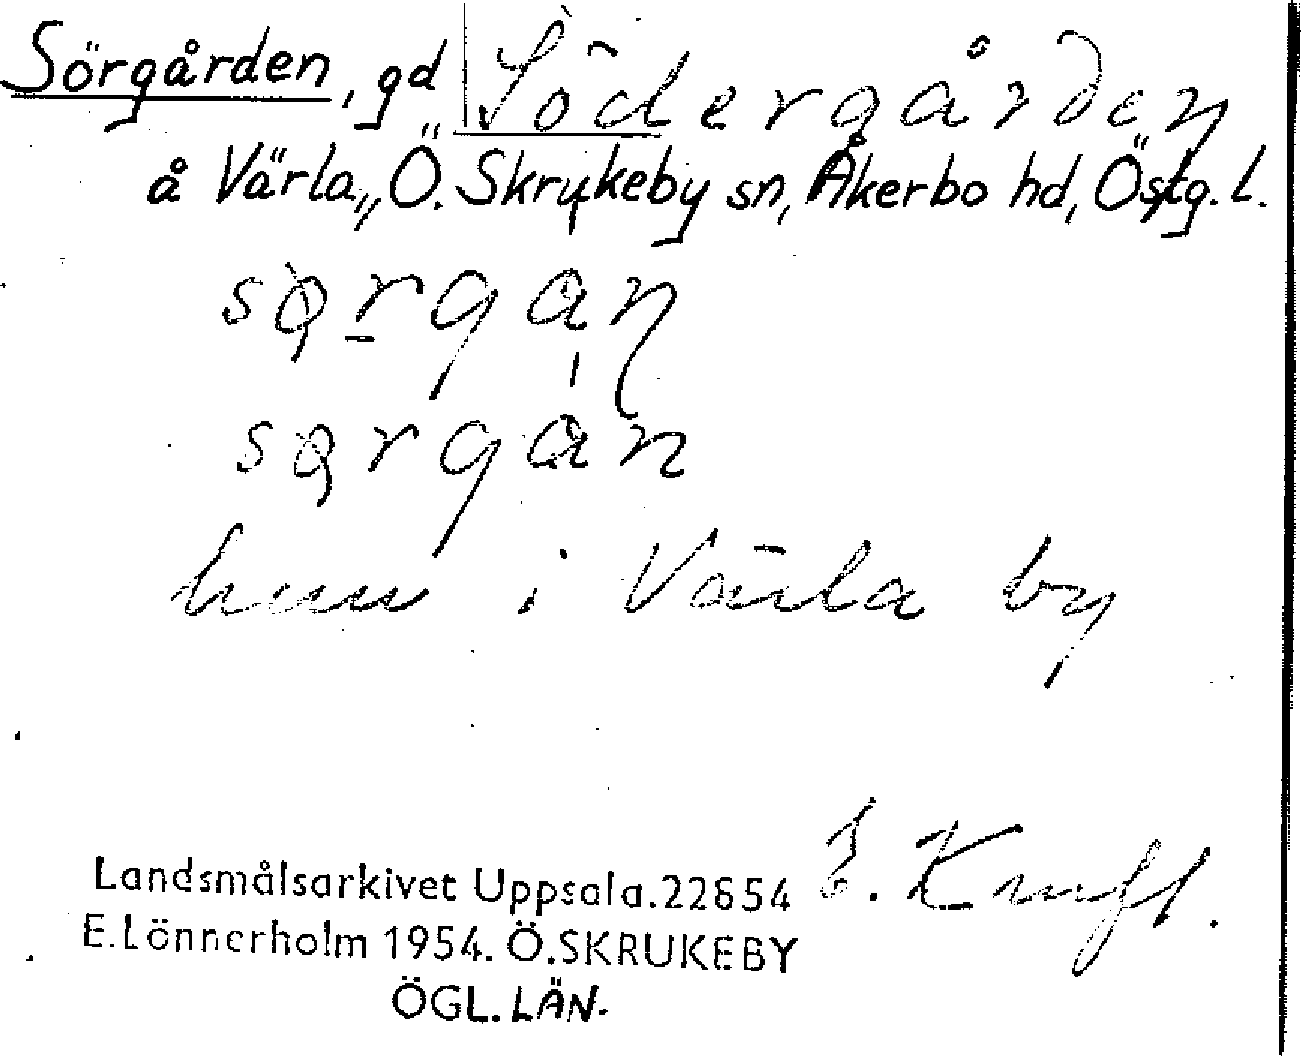 Sörgården, gd Södergården
å Värla, Ö. Skrukeby sn, Åkerbo hd, Östg. l.
sǫrgan
sǫrgan
hem i Värla by
E. Kraft.
Landsmålsarkivet Uppsala. 22654
E. Lönnerholm 1954. Ö. SKRUKEBY
ÖGL. LÄN.